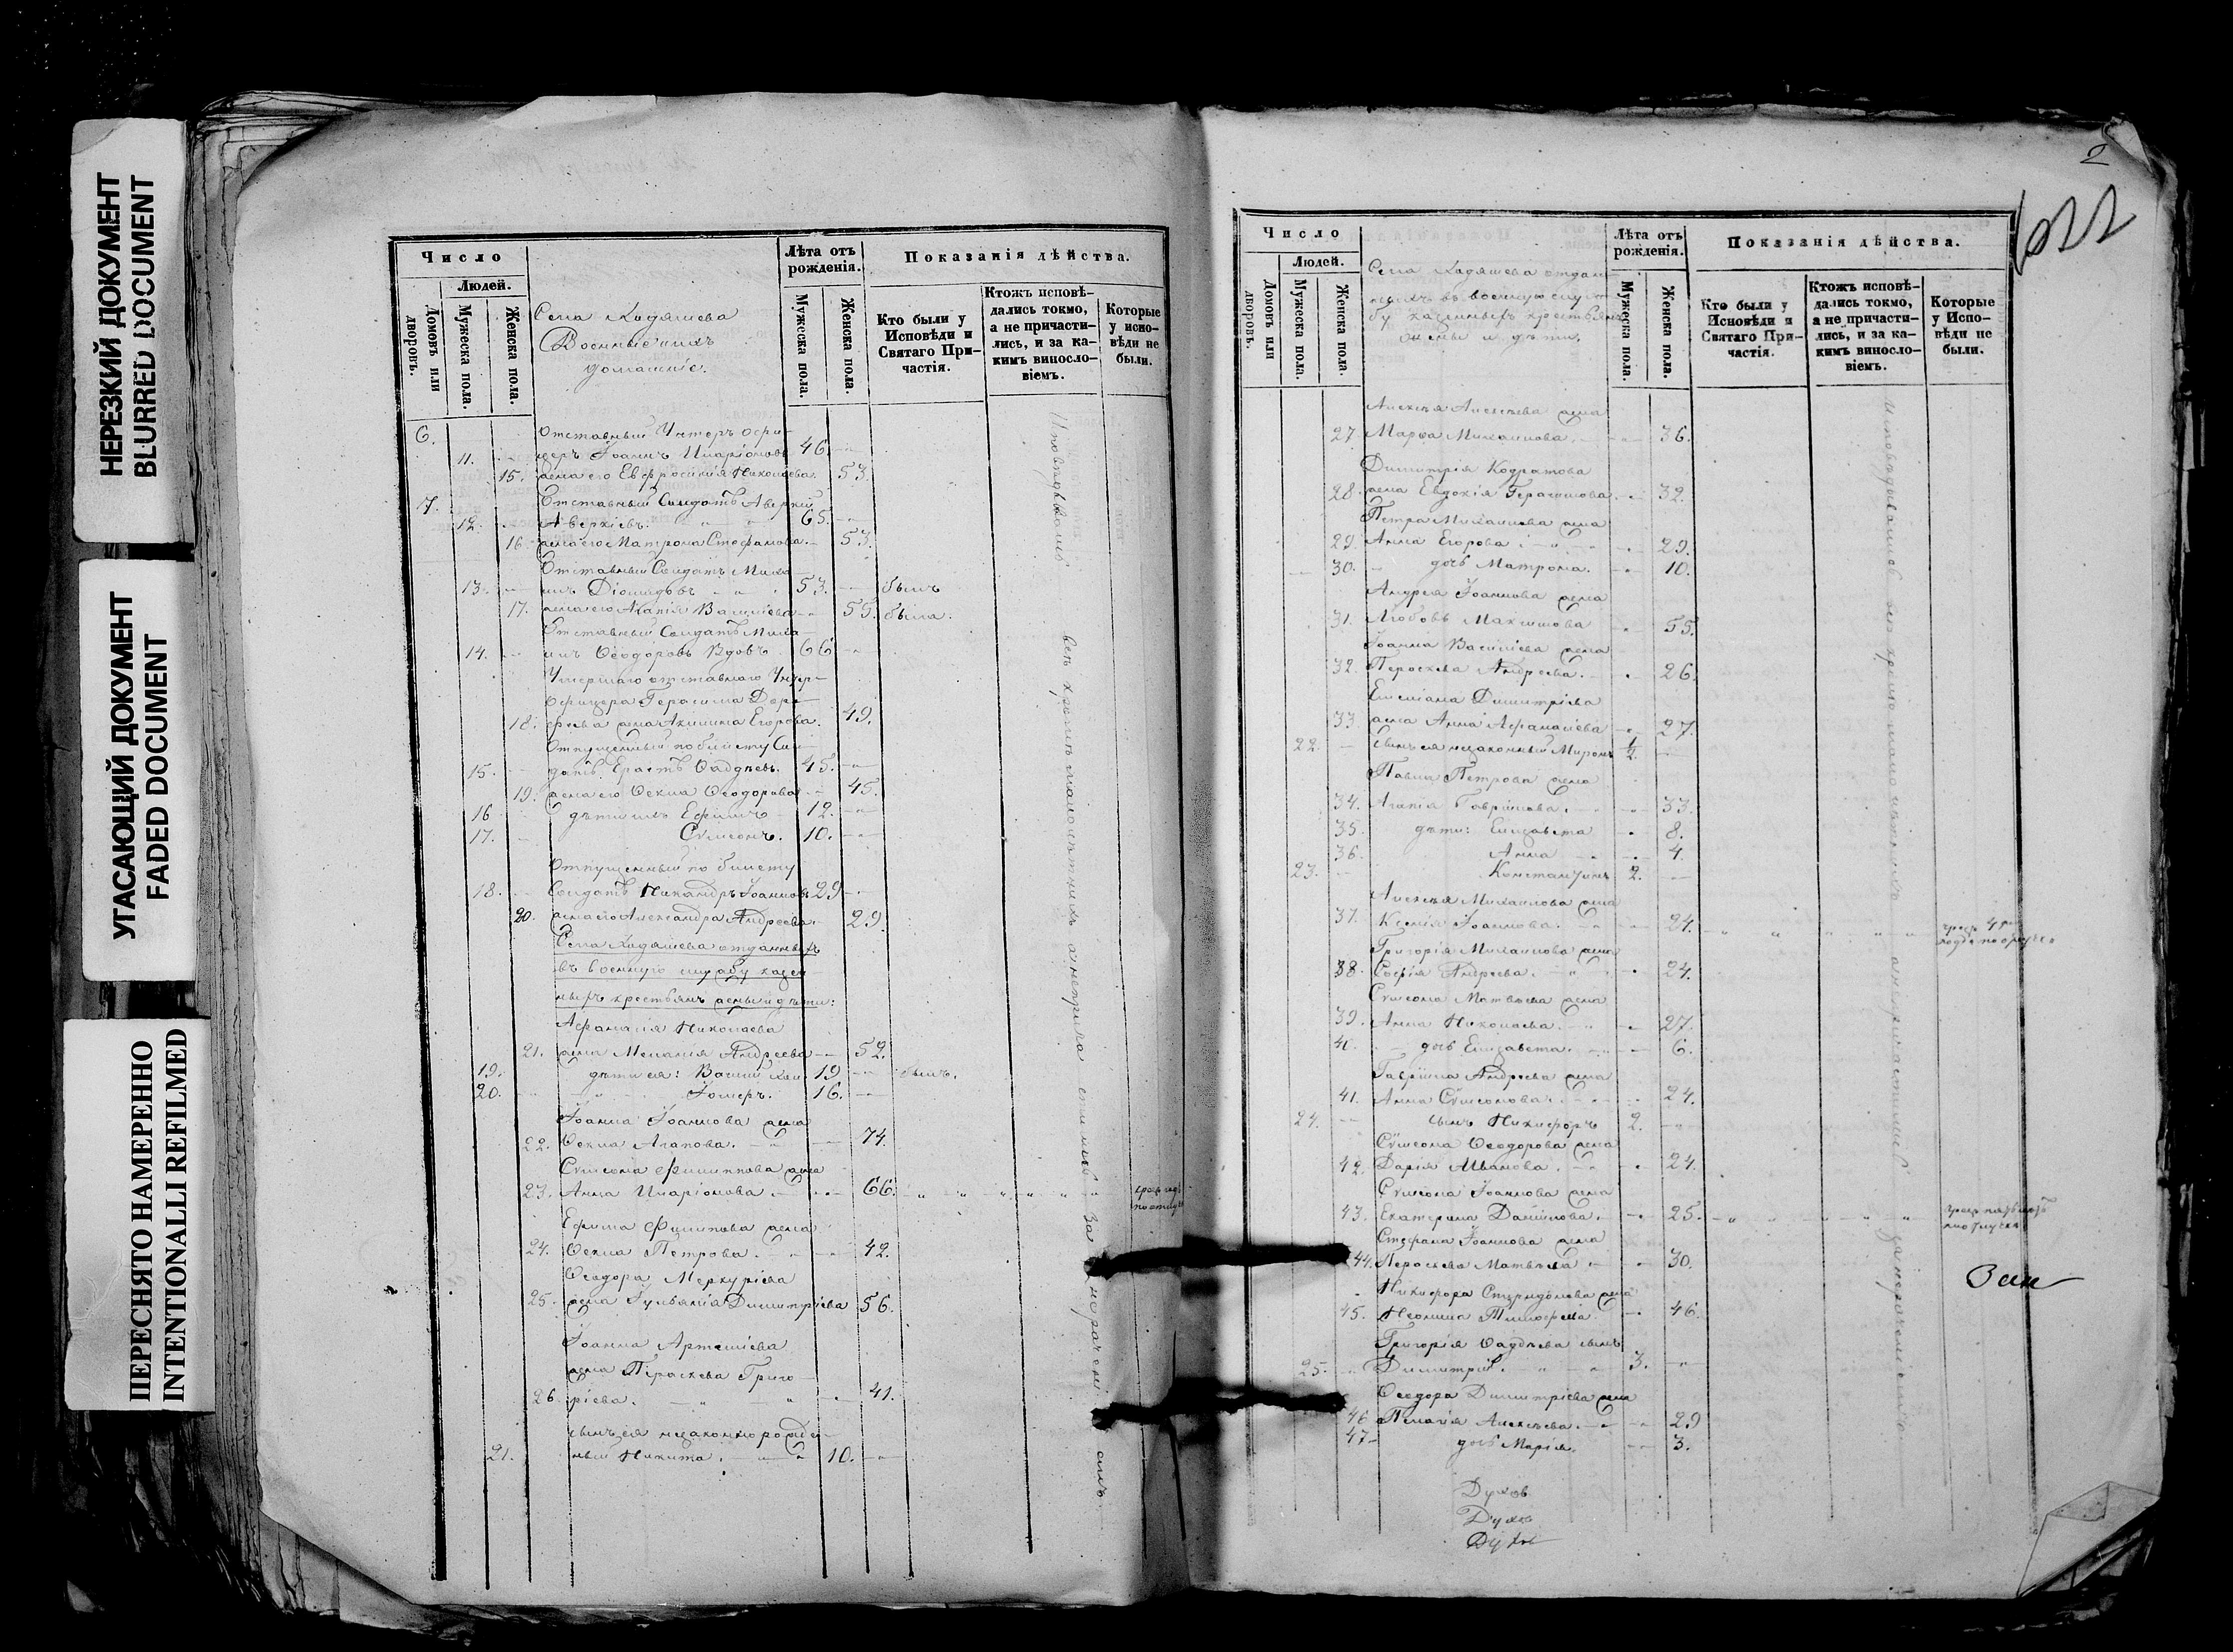 НЕРЕЗКИЙ ДОКУМЕНТ
BLURRED DOCUMENT
УГАСАЮЩИЙ ДОКУМЕНТ
FADED DOCUMENT
ПЕРЕСНЯТО НАМЕРЕННО
INTENTIONALLI REFILMED
Число
Людей.
Домовъ или дворовъ.
Мужеска пола.
Женска пола.
Села Кадышева
Военные и ихъ
домашніе.
Лѣта отъ рожденія.
Мужеска пола.
Женска пола.
Показанія дѣйства.
Кто были у Исповѣди и Святаго При-частія.
Ктожъ исповѣ-дались токмо, а не причасти-лись, и за ка-кимъ винослo-віемъ.
Которые у испо-вѣди не были.
6. Отставный Унтеръ Офи-
11. церъ Іоаннъ Иларіоновъ 46.
15. жена его Евфросинія Николаева. 53.
7. Отставный Солдатъ Аверкій
12. Аверкіевъ. 65.
16. жена его Матрона Стефанова. 53.
Отставный Солдатъ Миха-
13. илъ Діомидовъ 53. былъ
17. жена его Агапія Василіева 55. была.
Отставный Солдатъ Миха-
14. илъ Ѳеодоровъ Вдовъ 66
Умершаго отставнаго Унтер-
офицера Герасима Доро-
18. феева жена Акилина Егорова. 49.
Отпущенный по билету Сол-
15. датъ Ерастъ Ѳаддѣевъ. 45.
19. жена его Ѳекла Ѳеодорова 45.
16 дѣти ихъ Ефимъ 12.
17. Сѵмеонъ. 10.
Отпущенный по билету
18. Солдатъ Никандръ Іоанновъ 29
20. жена его Александра Андреева. 29.
Села Кадышева отданныхъ
въ военную службу казен-
ныхъ крестьянъ жены и дѣти:
Афанасія Николаева
21. жена Меланія Андреева 52.
19. дѣти ея: Василій 19 былъ.
20. 16.
Іоанна Іоаннова жена
22. Ѳекла Агапова. 74.
Сѵмеона Филиппова жена
23. Анна Иларіонова. 66.
Ефима Филипова жена
24. Ѳекла Петрова. 42.
Ѳеодора Меркуріева
25. жена Іуліанія Димитріева 56.
Іоанна Артеміева
жена Параскева Григо-
26. ріева. 41.
сынъ ея незаконнорожден-
21. ный Никита. 10.
2
622
Число
Людей.
Домовъ или дворовъ.
Мужеска пола.
Женска пола.
Села Кадышева отдан-
ныхъ въ военную служ-
бу казенныхъ крестьянъ
жены и дѣти.
Лѣта отъ рожденія.
Мужеска пола.
Женска пола.
Показанія дѣйства.
Кто были у Исповѣди и Святаго При-частія.
Ктожъ исповѣ-дались токмо, а не причасти-лись, и за ка-кимъ винословіемъ.
Которые у Испо-вѣди не были.
Алексѣя Алексѣева жена
27. Марѳа Михаилова. 36.
Димитрія Кодратова
28. жена Евдокія Герасимова. 32.
Петра Михаилова жена
29. Анна Егорова 29.
30. дочь Матрона. 10.
Андрея Іоаннова жена
31. Любовь Максимова 55.
Іоанна Василіева жена
32. Параскева Андреева. 26.
Емеліана Димитріева
33 жена Анна Афанасіева 27.
22. сынъ ея незаконный Миронъ 1/2
Павла Петрова жена
34. Агапія Гавріилова. 33.
35. дѣти: Елизавета 8.
36. Анна 4.
23. Константинъ 2.
Алексѣя Михаилова жена
37. Ксенія Іоаннова. 24.
Григорія Михаилова жена
38. Софія Андреева. 24.
Сѵмеона Матвѣева жена
39. Анна Николаева. 27.
40. дочь Елизавета. 6.
Гавріила Андреева жена
41. Анна Сѵмеонова. 24.
24. сынъ Никифоръ 2.
Сѵмеона Ѳеодорова жена
42. Дарія Иванова. 24.
Сѵмеона Іоаннова жена
43. Екатерина Даніилова. 25.
Стефана Іоаннова жена
44. Параскева Матвѣева 30.
Никифора Спиридонова жена
45. Неонила Тимофеева 46.
Григорія Ѳаддѣева сынъ
25. Димитрій. 3.
Ѳеодора Димитріева жена
46 Пелагія Алексѣева. 29
47 дочь Марія. 3.